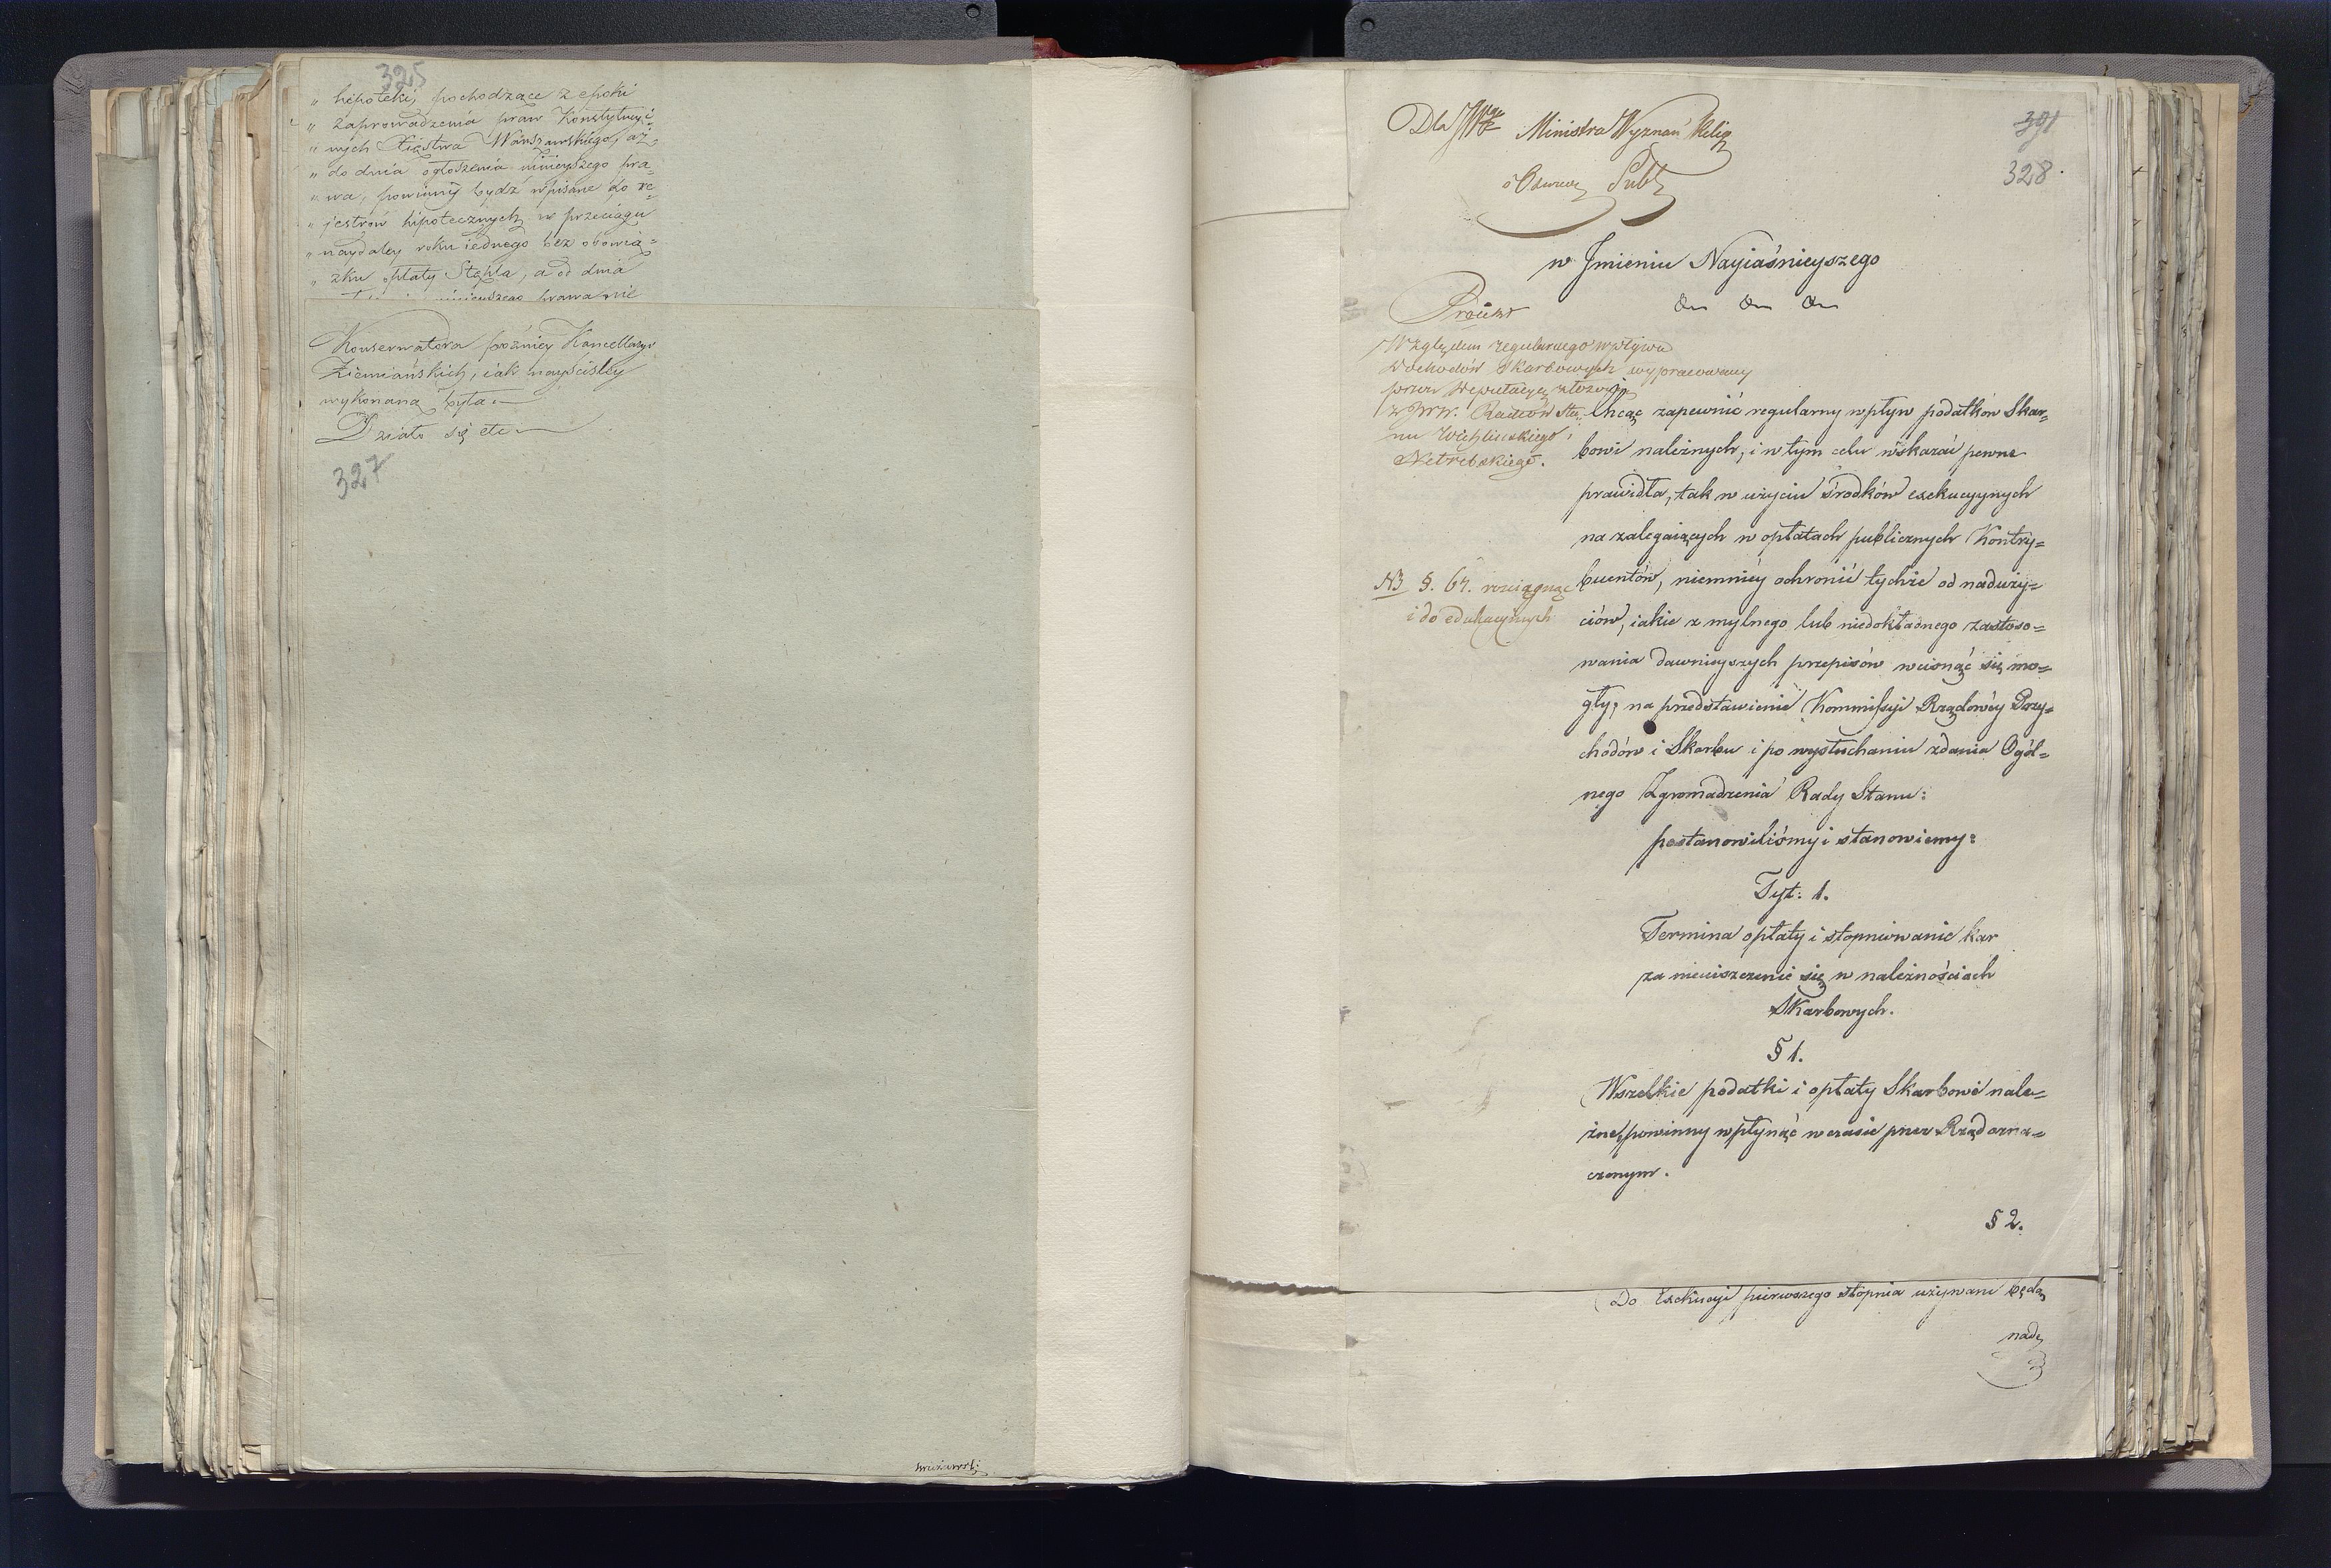 325
„ hipoteki, pochodzące z epoki
„ zaprowadzenia praw Konstytucyi-
„ nych Xięstwa Warszawskiego, aż
„ do dnia ogłoszenia ninieyszego pra=
„ wa, powinny bydź wpisane do re=
„ jestrów hipotecznych w przeciągu
„ naydaley roku iednego bez obowią=
„ zku opłaty Stępla, a od dnia
ninieyszego prawa nie
Konserwatora późniey Kancellaryi
Ziemiańskich, iak nayściśley
wykonaną była.—
Działo się etc—
327
Dla JW Ministra Wyznań Relig
i Oświec Publ
391
328.
w Jmieniu Nayiaśnieyszego
Proiekt
Względem regularnego wpływu
Dochodów Skarbowych wypracowany
przez Deputacyą złożoną
z JWW. Radców Sta=
nu Wichlinskiego i
Netrebskiego.
Chcąc zapewnić regularny wpływ podatków Skar=
bowi należnych, i w tym celu wskazać pewne
prawidła, tak w użyciu środków exekucyynych
na zalegaiących w opłatach publicznych Kontry=
buentów, niemniéy ochronić tychże od naduży=
ciów, iakie z mylnego lub niedokładnego zastoso=
wania dawnieyszych przepisów wcisnąć się mo=
gły; na przedstawienie Kommissyi Rządowéy Przy=
chodów i Skarbu i po wysłuchaniu zdania Ogól=
nego Zgromadzenia Rady Stanu:
NB §. 67. rozciągnąć
i do edukacyinych
postanowiliśmy i stanowiemy:
Tyt: 1.
Termina opłaty i stopniowanie kar
za nieuiszczenie się w należnościach
Skarbowych.
§ 1.
Wszelkie podatki i opłaty Skarbowe nale=
żne, powinny wpłynąć w czasie przez Rząd ozna=
czonym.
§ 2.
Do Exekucyi pierwszego stopnia używani będą